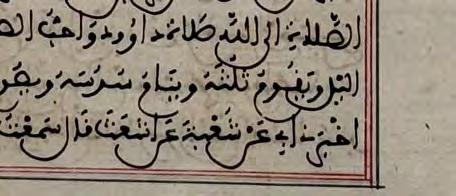 الصلاة الى الله صلاة داوود واحب
اليل ويقوم ثلثه وينام سدسه
اخبرني ابي عن شعبة عن اشعث قال سمعت